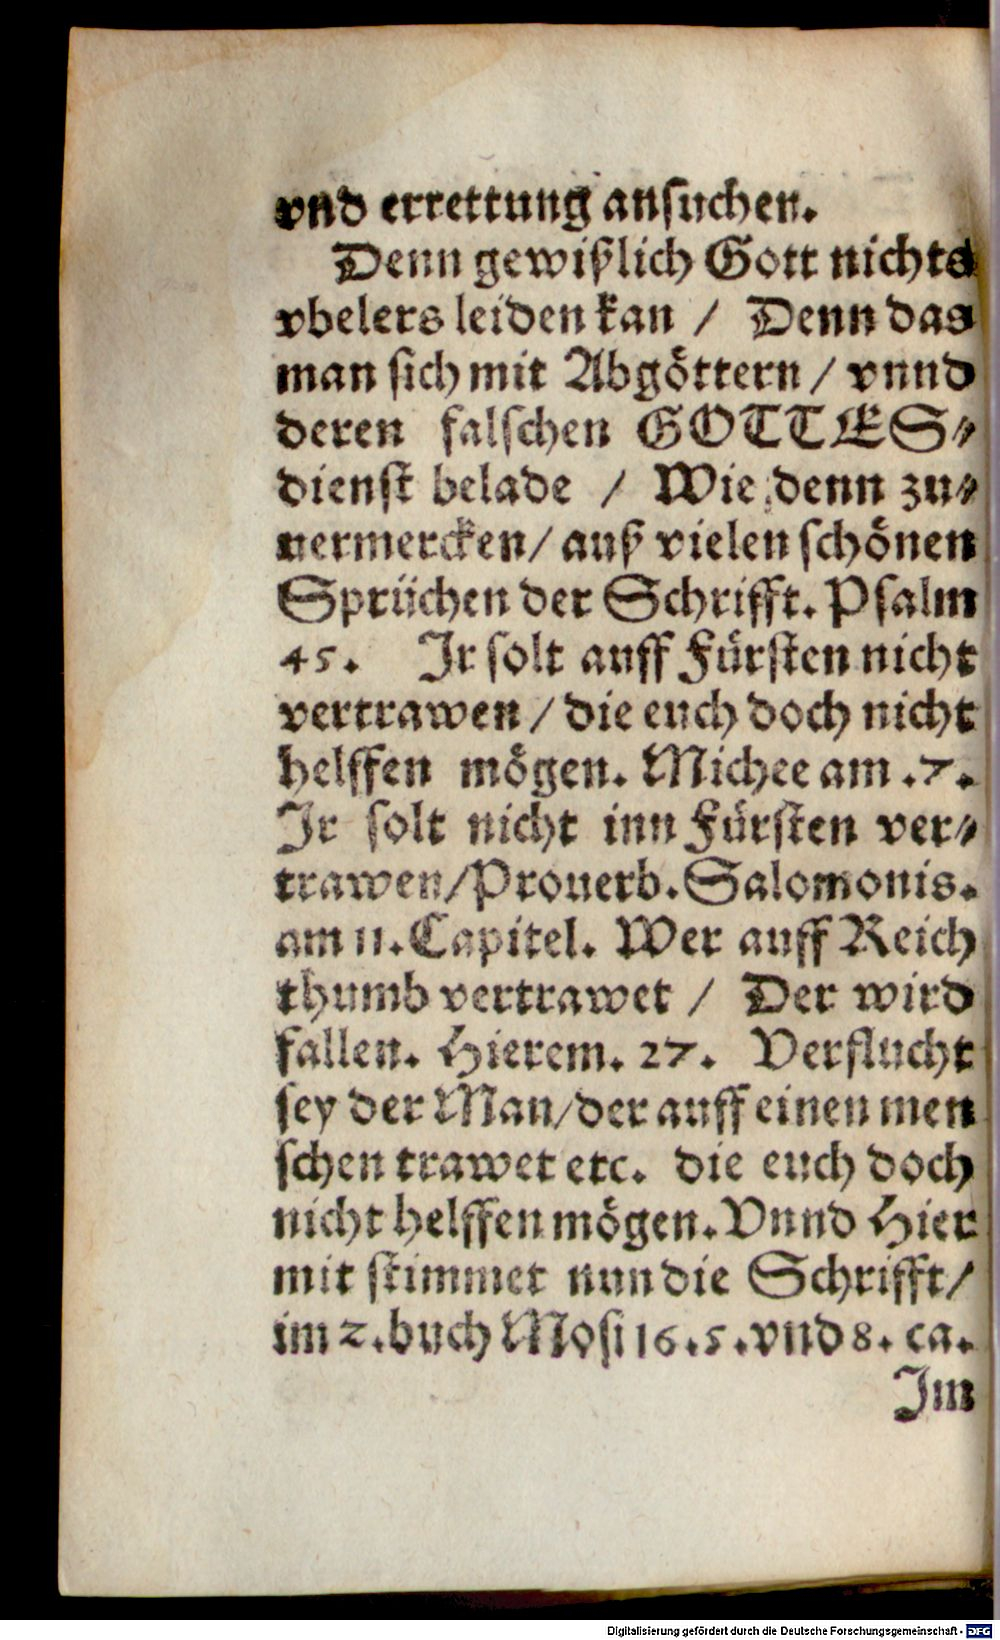 vnd errettung ansuchen.
Denn gewißlich Gott nichts
vbelers leiden kan / Denn das
man sich mit Abgöttern / vnnd
deren falschen GOTTES⸗
dienst belade / Wie denn zu⸗
uermercken/ auß vielen schönen
Sprüchen der Schrifft. Psalm
45. Ir solt auff Fürsten nicht
vertrawen / die euch doch nicht
helffen mögen. Michee am .7.
Ir solt nicht inn Fürsten ver⸗
trawen/Prouerb. Salomonis.
am 11. Capitel. Wer auff Reich
thumb vertrawet / Der wird
fallen. Hierem. 27. Verflucht
sey der Man/der auff einen men
schen trawet etc. die euch doch
nicht helffen mögen. Vnnd Hier
mit stimmet nun die Schrifft/
im 2. buch Mosi 16. 5. vnd 8. ca.
Im
Digitalisierung gefördert durch die Deutsche Forschungsgemeinschaft - DFG